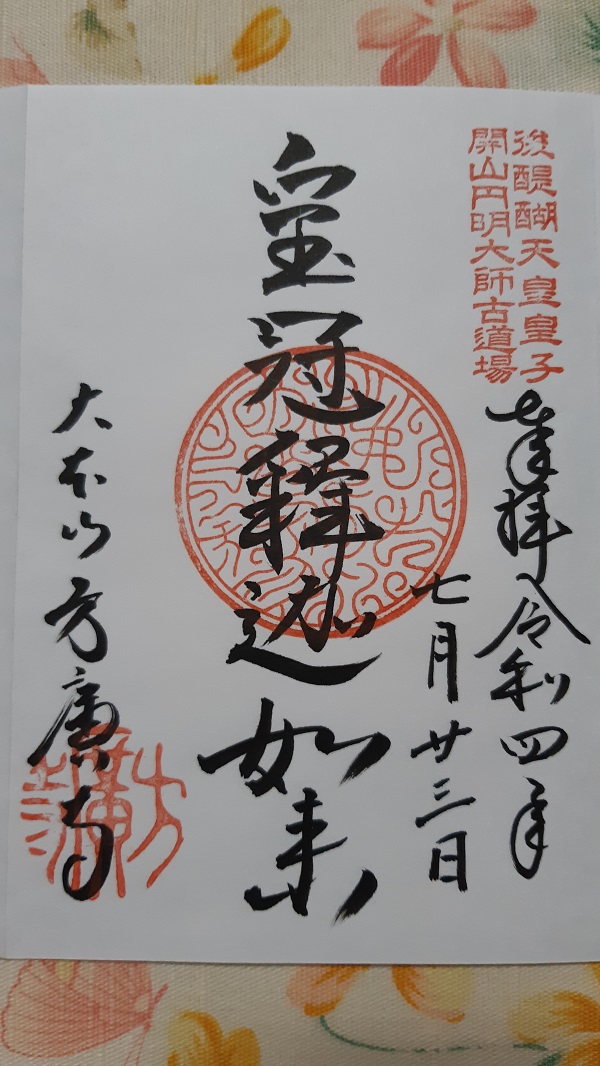 後醍醐天皇皇子
開山円明大師古道場
奉拝 令和四年
七月廿三日
宝冠釋迦如来
大本山方廣寺